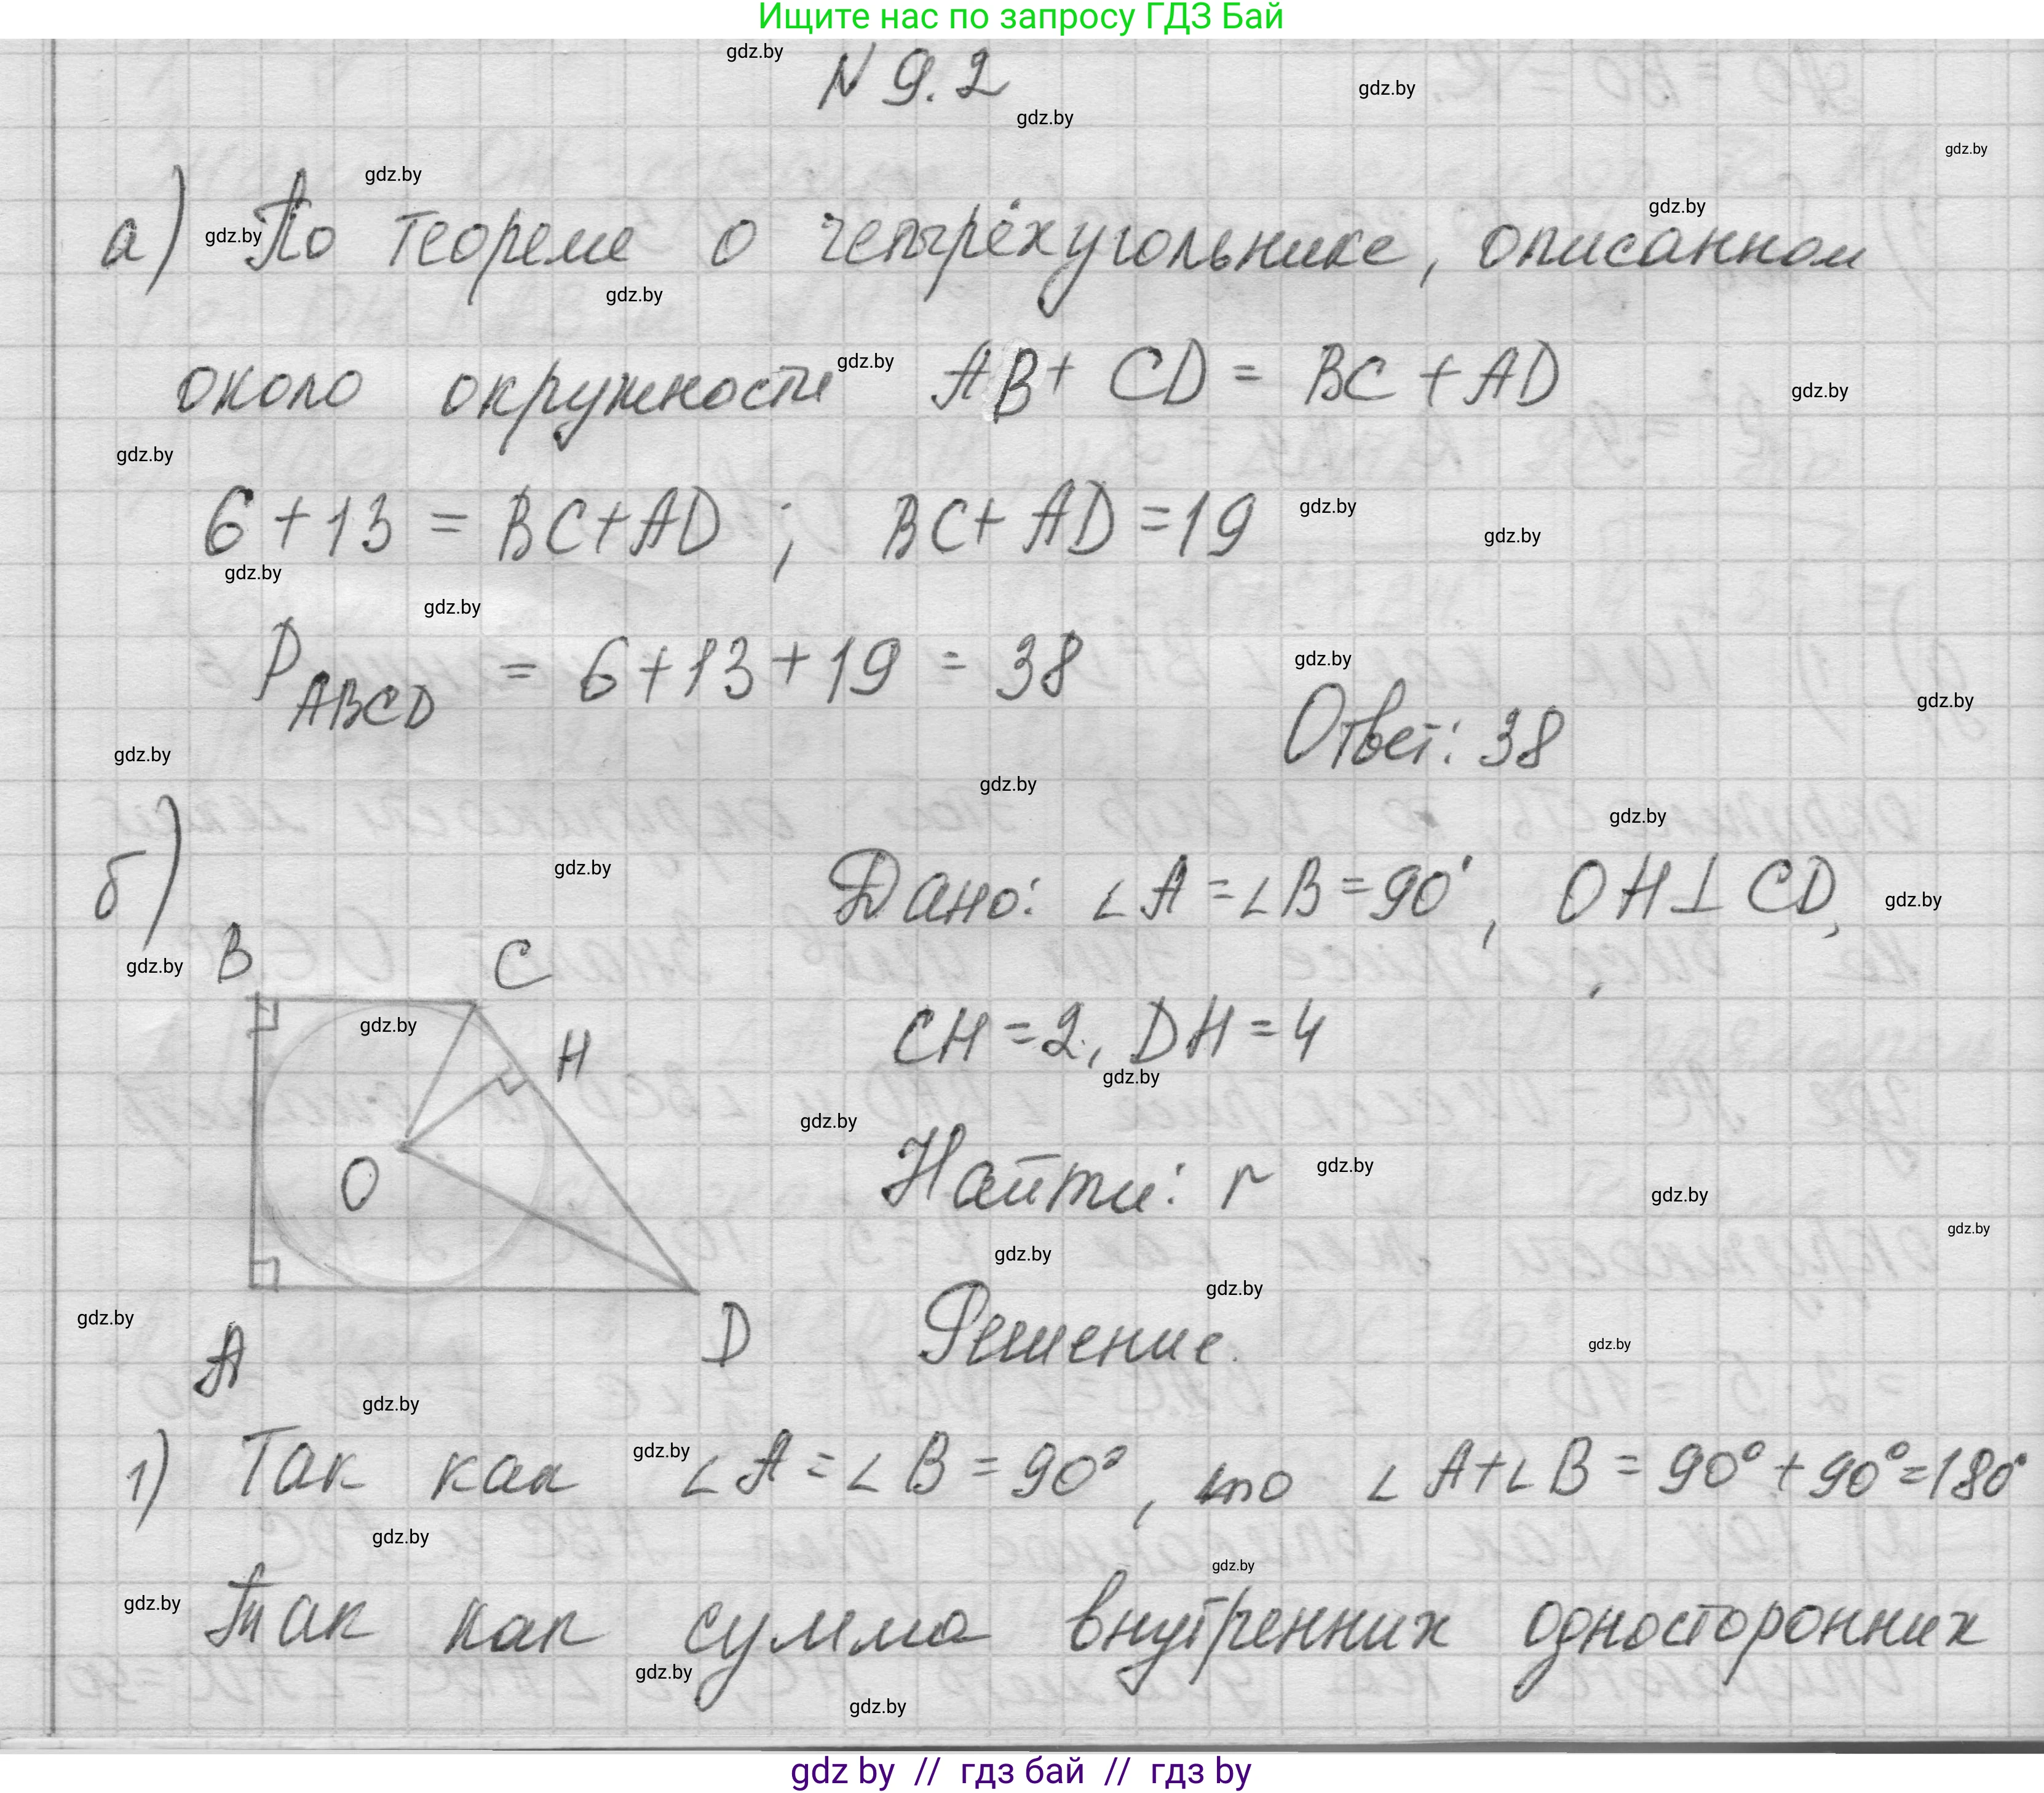 Ищите нас по запросу ГДЗ Бай
N 9.2
а) По теореме о четырёхугольнике, описанном
около окружности AB + CD = BC + AD
6 + 13 = BC + AD ; BC + AD = 19
P ABCD = 6 + 13 + 19 = 38
Ответ: 38
б)
Дано: ∠A = ∠B = 90°, OH ⊥ CD,
B C
CH = 2, DH = 4
H
Найти: r
O
Решение.
A D
1) Так как ∠A = ∠B = 90°, то ∠A + ∠B = 90° + 90° = 180°
Так как сумма внутренних односторонних
gdz by // гдз бай // гдз by